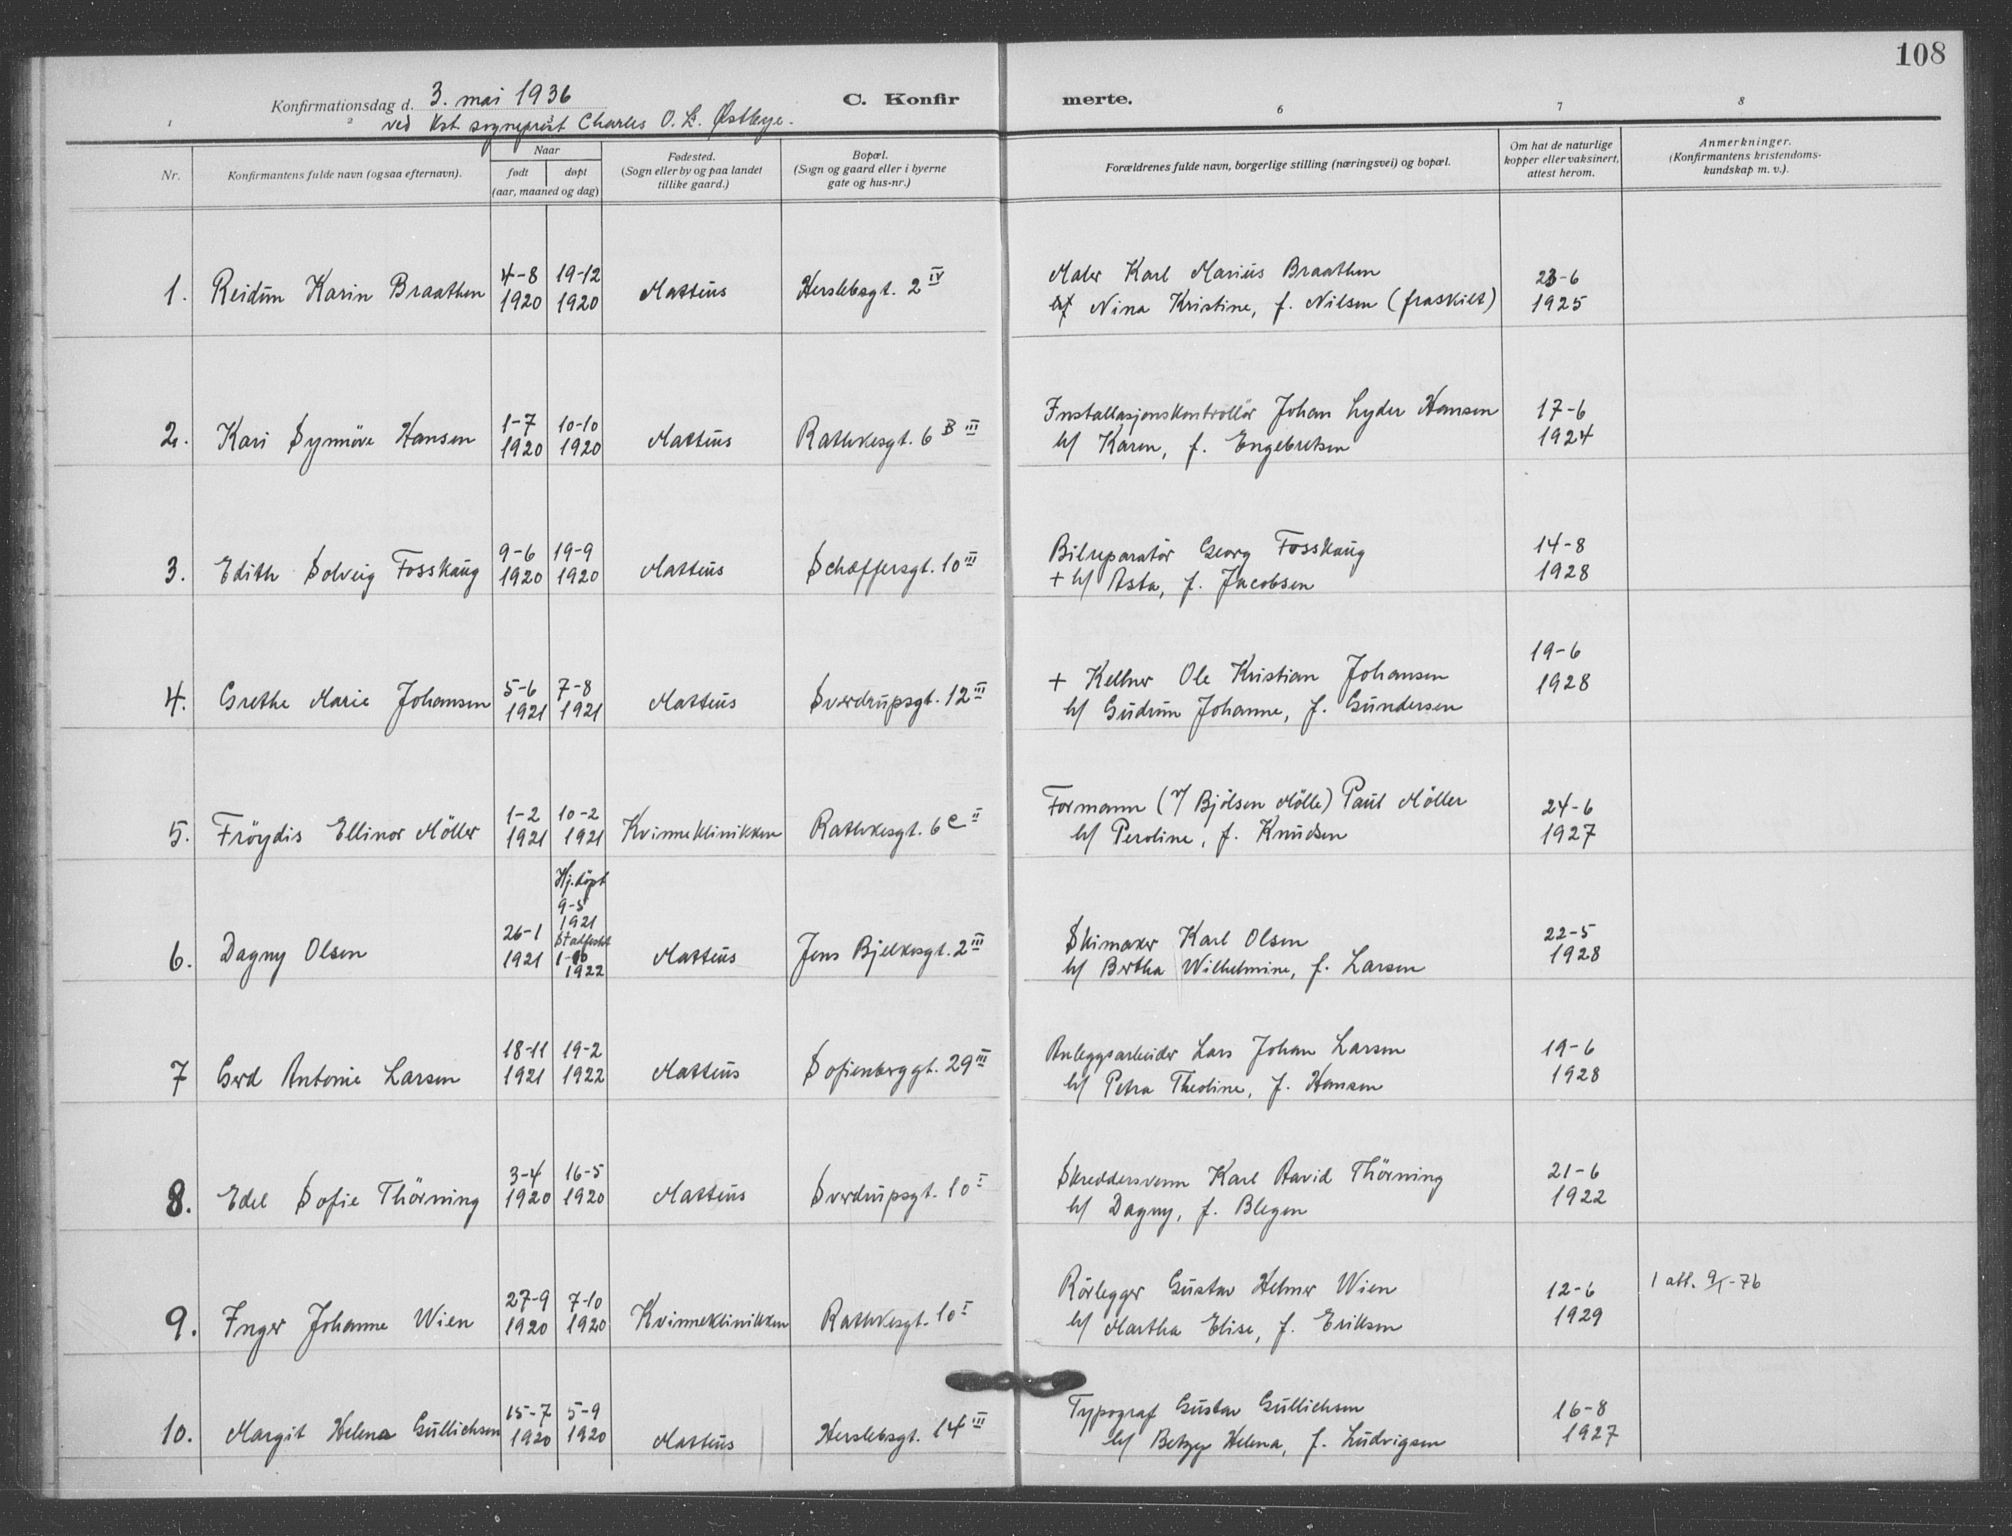 108
Konfirmationsdag d. 3. mai 1936
C. Konfirmerte.
ved kst. sogneprest Charles O. L. Østbye.
1 2 3 6 7 8
Nr.
Konfirmantens fulde navn (ogsaa efternavn).
Naar
født døpt
(aar, maaned og dag)
Fødested.
(Sogn eller by og paa landet
tillike gaard.)
Bopæl.
(Sogn og gaard eller i byerne
gate og hus-nr.)
Forældrenes fulde navn, borgerlige stilling (næringsvei) og bopæl.
Om hat de naturlige
kopper eller vaksinert,
attest herom.
Anmerkninger.
(Konfirmantens kristendoms-
kundskap m. v.).
4-8 19-12 Maler Karl Marius Braathen 23-6
1. Reidun Karin Braathen 1920 1920 Matteus Herslebsgt. 2 IV
Nina Kristine, f. Nilsen (fraskilt) 1925
1-7 10-10 Installasjonskontrollör Johan Lyder Hansen 17-6
2. Kari Synnöve Hansen 1920 1920 Matteus Rathkesgt. 6 B III h/ Karen, f. Engebretsen 1924
9-6 19-9 Bilreparatör Georg Fosskaug 14-8
3. Edith Solveig Fosskaug 1920 1920 Matteus Schæffersgt. 10 III + h/ Asta, f. Jacobsen 1928
5-6 7-8 + Kellner Ole Kristian Johansen 19-6
4. Grethe Marie Johansen 1921 1921 Matteus Sverdrupsgt. 12 III h/ Gudrun Johanne, f. Gundersen 1928
1-2 10-2 Formann (v/ Bjölsen Mölle) Paul Möller 24-6
5. Fröydis Ellinor Möller 1921 1921 Kvinneklinikken Rathkesgt. 6 C II h/ Peroline, f. Knudsen 1927
Hj.döpt
9-5
1921
26-1 Stadfestet Skimaker Karl Olsen 22-5
6. Dagny Olsen 1921 1-10 Matteus Jens Bjelkesgt. 2 III h/ Bertha Wilhelmine, f. Larsen 1928
1922
18-11 19-2 Anleggsarbeider Lars Johan Larsen 19-6
7 Gerd Antonie Larsen 1921 1922 Matteus Sofienberggt. 29 III h/ Petra Theoline, f. Hansen 1928
3-4 16-5 Skreddersvenn Karl David Thörning 21-6
8. Edel Sofie Thörning 1920 1920 Matteus Sverdrupsgt. 10 I h/ Dagny, f. Blegen 1922
27-9 7-10 Rörlegger Gustav Helmer Wien 12-6 1 att. 9/1-76
9. Inger Johanne Wien 1920 1920 Kvinneklinikken Rathkesgt. 10 I h/ Martha Elise, f. Eriksen 1929
15-7 5-9 Typograf Gustav Gullichsen 16-8
10. Margit Helena Gullichsen 1920 1920 Matteus Herslebsgt. 14 III h/ Betzy Helena, f. Ludvigsen 1927